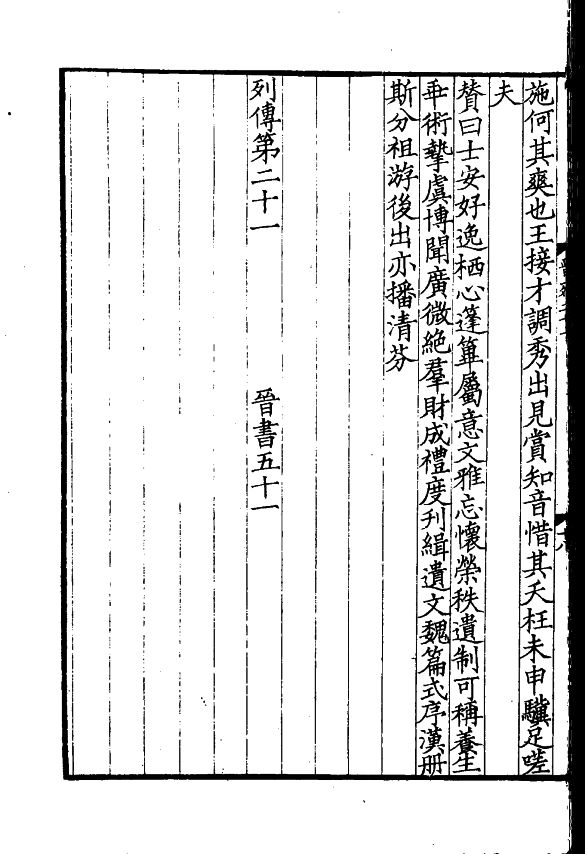 施何其爽也王接才調秀出見賞知音惜其夭枉未申驥足嗟
夫
贊曰士安好逸栖心蓬篳屬意文雅忘懷榮秩遺制可稱養生
乖術摯虞博聞廣微絶羣財成禮度刋緝遺文魏篇式序漢册
斯分祖游後出亦播清芬
列傳第二十一 晉書五十一